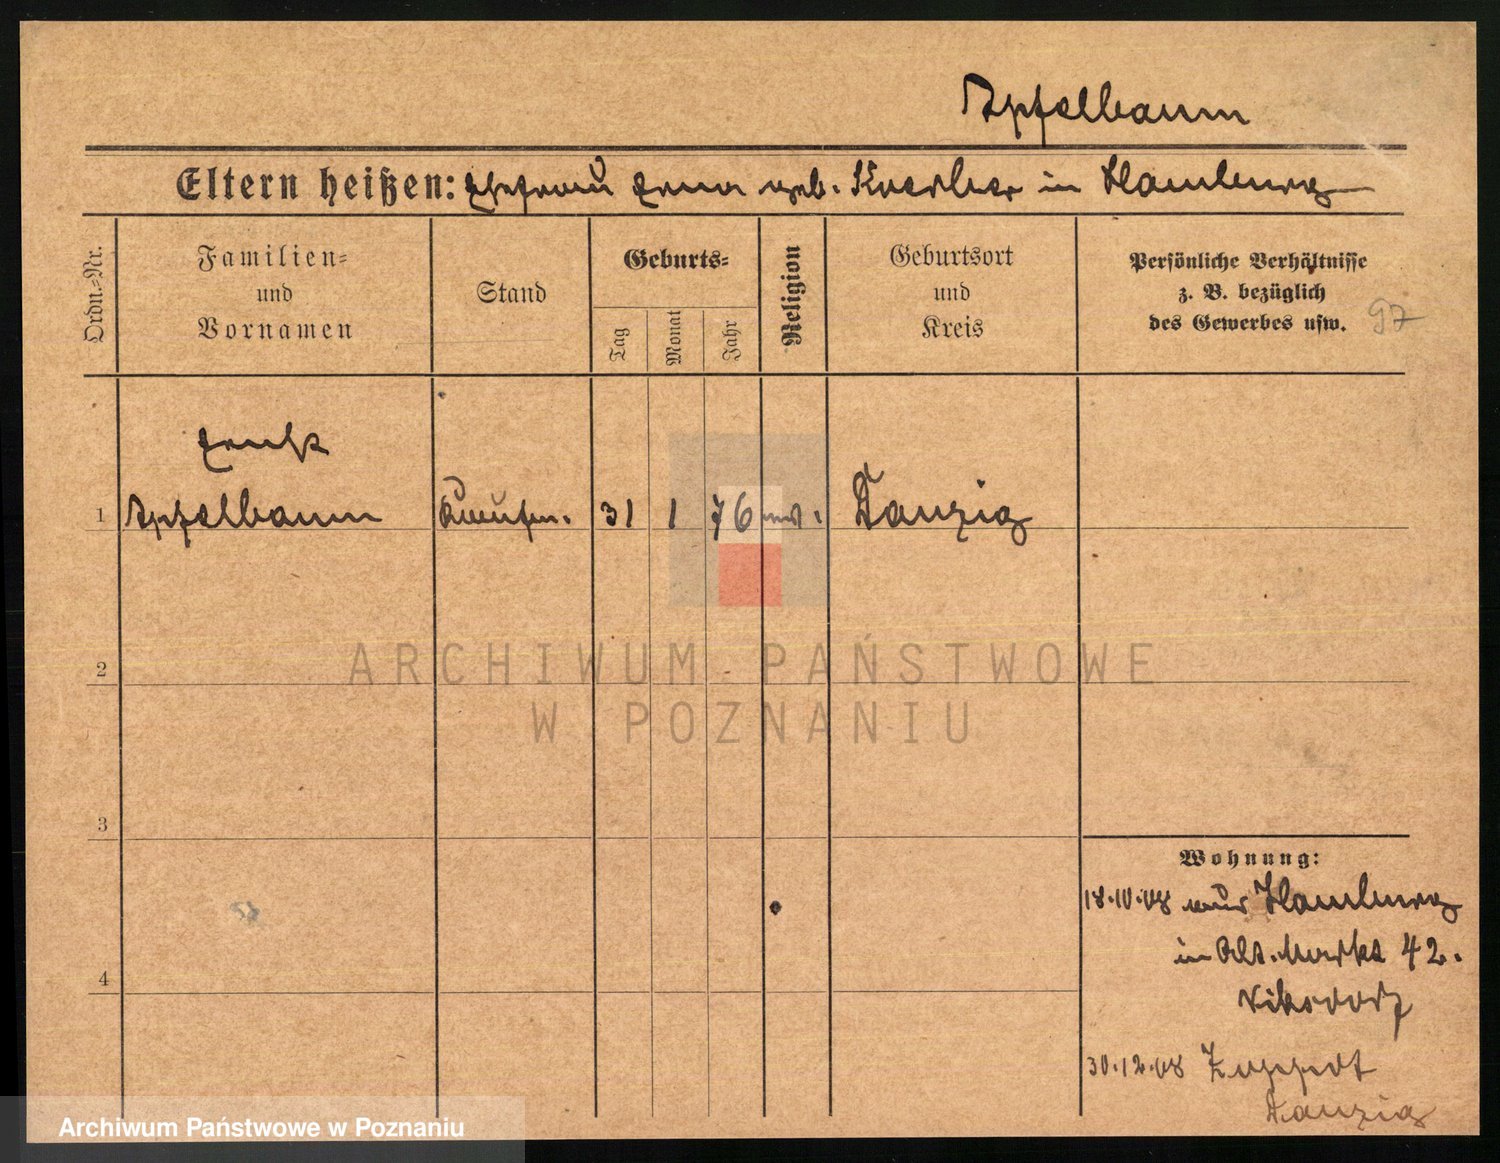 Apfelbaum
Eltern heißen: Ehefrau Erna geb. in Hamburg
Ordn.-Nr.
Familien=
und
Vornamen
Stand
Geburts=
Tag
Monat
Jahr
Religion
Geburtsort
und
Kreis
Persönliche Verhältnisse
z. B. bezüglich
des Gewerbes usw.
97
Ernst
1 Apfelbaum Kaufm. 31 1 76 Danzig
2
ARCHIWUM PAŃSTWOWE
W POZNANIU
3
Wohnung:
18.10.08 aus Hamburg
in Alt. Markt 42.
4
30.12.08 Zoppot
Danzig
Archiwum Państwowe w Poznaniu